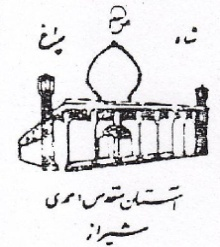 شاه چراغ
آستان مقدس احمدی
شیراز